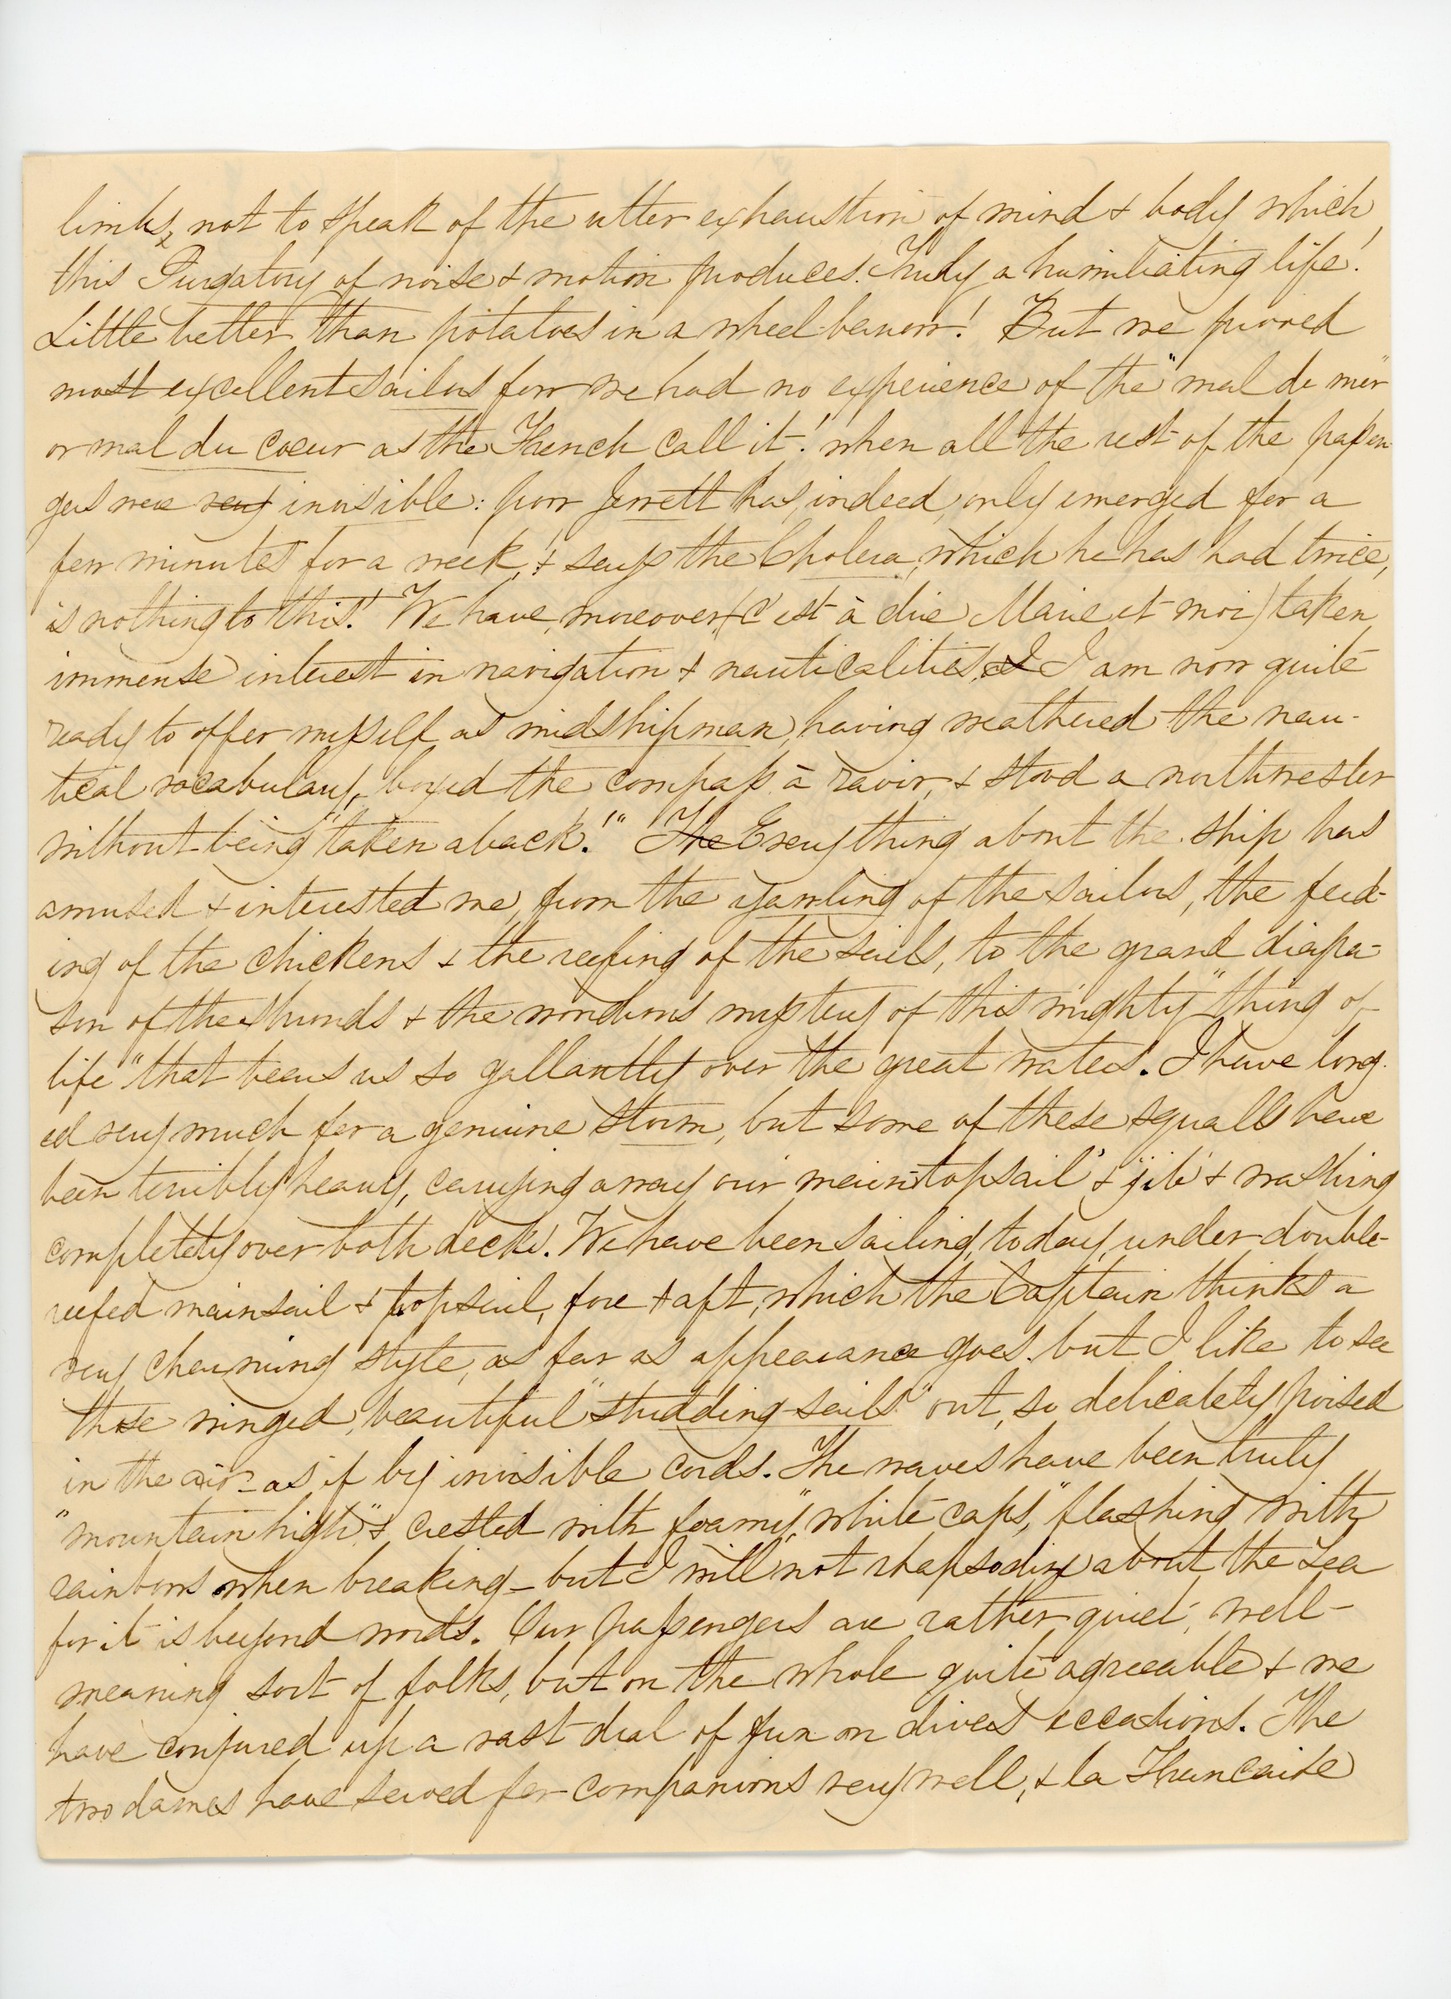 limbs, not to speak of the utter exhaustion of mind & body which,
this Purgatory of noise & motion produces. Truly a humiliating life!
Little better than potatoes in a wheel-barrow! But we proved
most excellent sailors for we had no experience of the "mal de mer"
or mal du coeur as the French call it! when all the rest of the passen
gers were very invisible: poor Jerrett has, indeed, only emerged for a
few minutes for a week, & says the Cholera, which he has had twice,
is nothing to this! We have, moreover, (c'est à dire Marie et moi) taken
immense interest in navigation & nauticalities, & I I am now quite
ready to offer myself as midshipman, having weathered the nau-
tical vocabulary, boxed the compass à ravir, & stood a northwester
without being "taken aback!" The Everything about the ship has
amused & interested me, from the yarnling of the sailors, the feed-
ing of the chickens & the reefing of the sails, to the grand diapa-
son of the shrouds & the wondrous mystery of this mighty "thing of
life" that bears us so gallantly over the great waters. I have long
ed very much for a genuine storm, but some of these squalls have
been terribly heavy, carrying away our 'main-topsail' & 'jib' & washing
completely over both decks. We have been sailing, today, under double-
reefed mainsail & topsail, fore & aft, which the Captain thinks a
very charming style, as far as appearance goes. but I like to see
those winged, beautiful "studding-sails" out, so delicately poised
in the air- as if by invisible cords. The waves have been truly
"mountain high" & crested with foamy, "white caps," flashing with
rainbows when breaking - but I will not rhapsodize about the sea
for it is beyond words. Our passengers are rather quiet, well-
meaning sort of folks, but on the whole quite agreeable & we
have conjured up a vast deal of fun on divers occasions. The
two dames have served for companions very well, & la Francaise